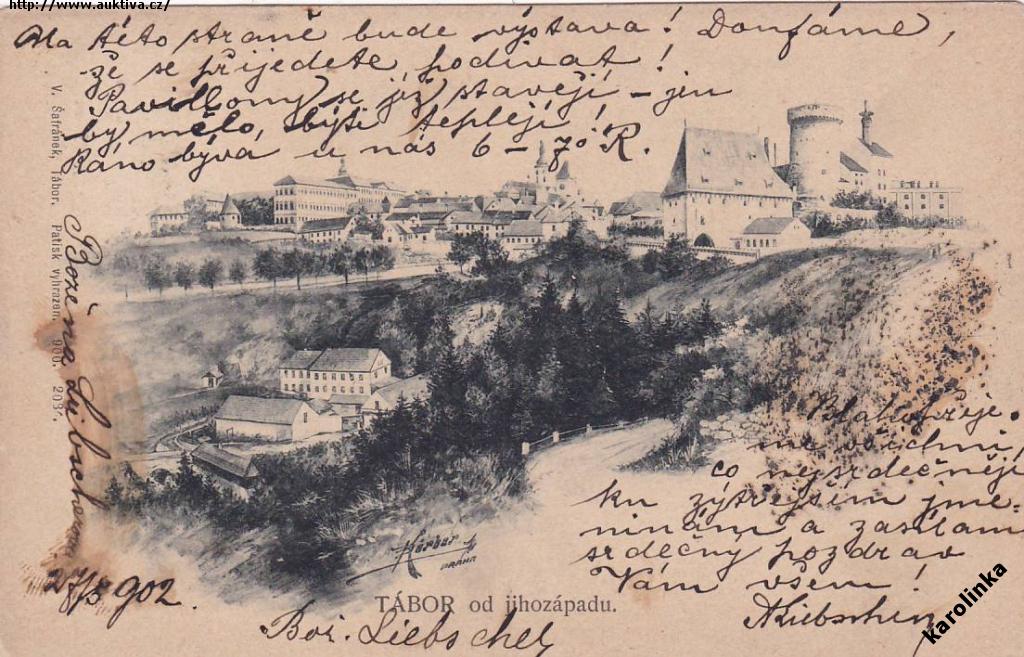 http://www.auktiva.cz/
Na této straně bude výstava! Doufáme,
že se přijedete podívat!
Pavillony se již stavějí – jen
by mělo býti tepleji!
Ráno bývá u nás 6 – 7° R.
V. Šafránek, Tábor. Patisk vyhrazen. 900. 203.
Růžena Liebscherová
27/5 902.
Blahopřeje-
me všichni
co nejsrdečněji
ku zýtřejším jme-
ninám a zasílám
srdečný pozdrav
Vám všem!
Körber
PRAHA
TÁBOR od jihozápadu.
Bož. Liebscher
karolinka